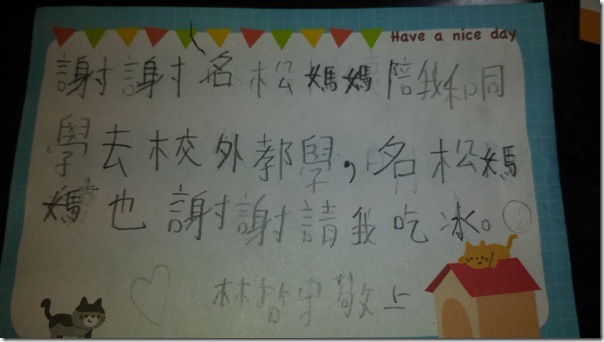 Have a nice day
謝謝名松媽媽陪我和同
學去校外教學，名松媽
媽也謝謝請我吃冰。
林智宇敬上